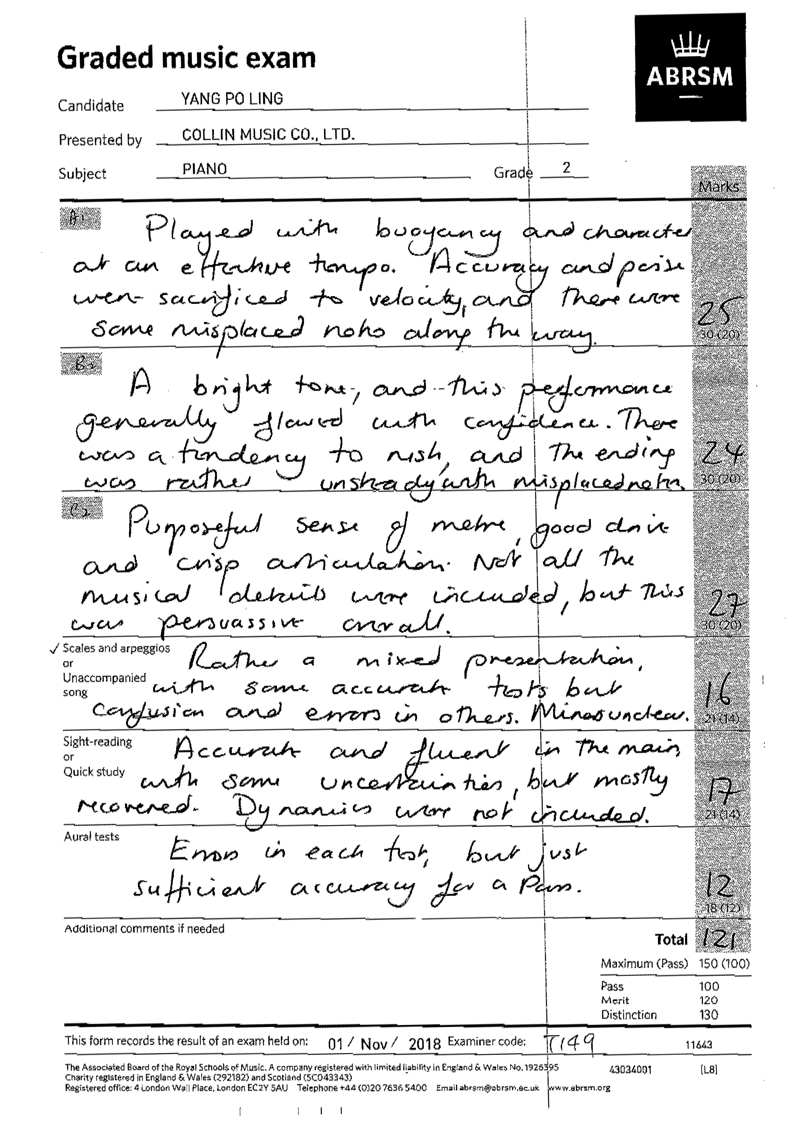 Graded music exam
ABRSM
Candidate YANG PO LING
Presented by COLLIN MUSIC CO., LTD.
Subject PIANO Grade 2
Marks
A1
Played with buoyancy and character
at an effective tempo. Accuracy and poise
were sacrificed to velocity, and there were
some misplaced notes along the way.
25
30 (20)
A bright tone, and this performance
generally flowed with confidence. There
was a tendency to rush, and the ending
was rather unsteady with misplaced notes.
24
30 (20)
Purposeful sense of metre, good drive
and crisp articulation. Not all the
musical details were included, but this
was persuassive overall.
27
30 (20)
✓ Scales and arpeggios
or
Unaccompanied
song
Rather a mixed presentation,
with some accurate tests but
confusion and errors in others. Minors unclear.
16
21 (14)
Sight-reading
or
Quick study
Accurate and fluent in the main,
with some uncertainties, but mostly
recovered. Dynamics were not included.
17
21 (14)
Aural tests
Errors in each test, but just
sufficient accuracy for a Pass.
12
18 (12)
Additional comments if needed
Total 121
Maximum (Pass) 150 (100)
Pass 100
Merit 120
Distinction 130
This form records the result of an exam held on: 01/ Nov / 2018 Examiner code: T149 11643
The Associated Board of the Royal Schools of Music. A company registered with limited liability in England & Wales No. 1926395 43034001 [L8]
Charity registered in England & Wales (292182) and Scotland (SC043343)
Registered office: 4 London Wall Place, London EC2Y 5AU Telephone +44 (0)20 7636 5400 Email abrsm@abrsm.ac.uk www.abrsm.org